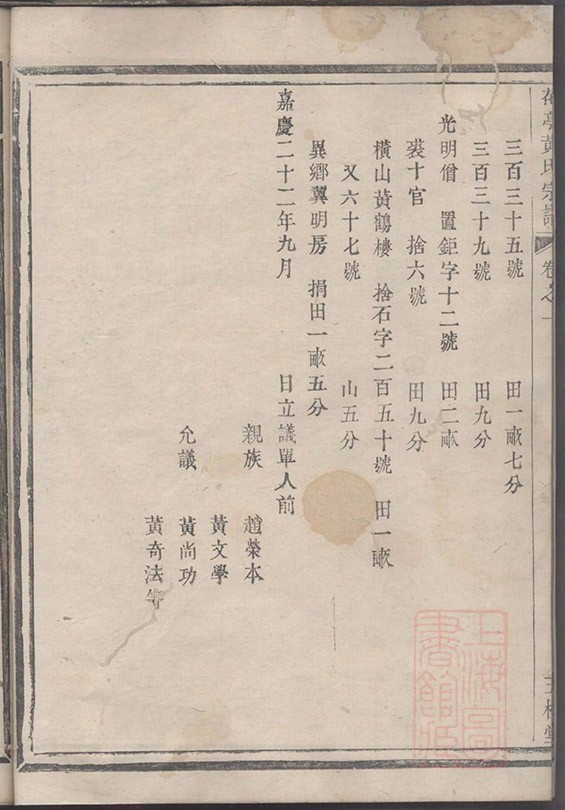 黃氏宗譜 卷之一
三百三十五號 田一畝七分
三百三十九號 田九分
光明僧 置鉅字十二號 田二畝
裘十官 捨六號 田九分
橫山黃鶴樓 捨石字二百五十號 田一畝
又六十七號 山五分
異鄉翼明房 捐田一畝五分
嘉慶二十二年九月 日立議單人前
親族 趙榮本
黃文學
允議 黃尚功
黃奇法等
上海圖書館藏